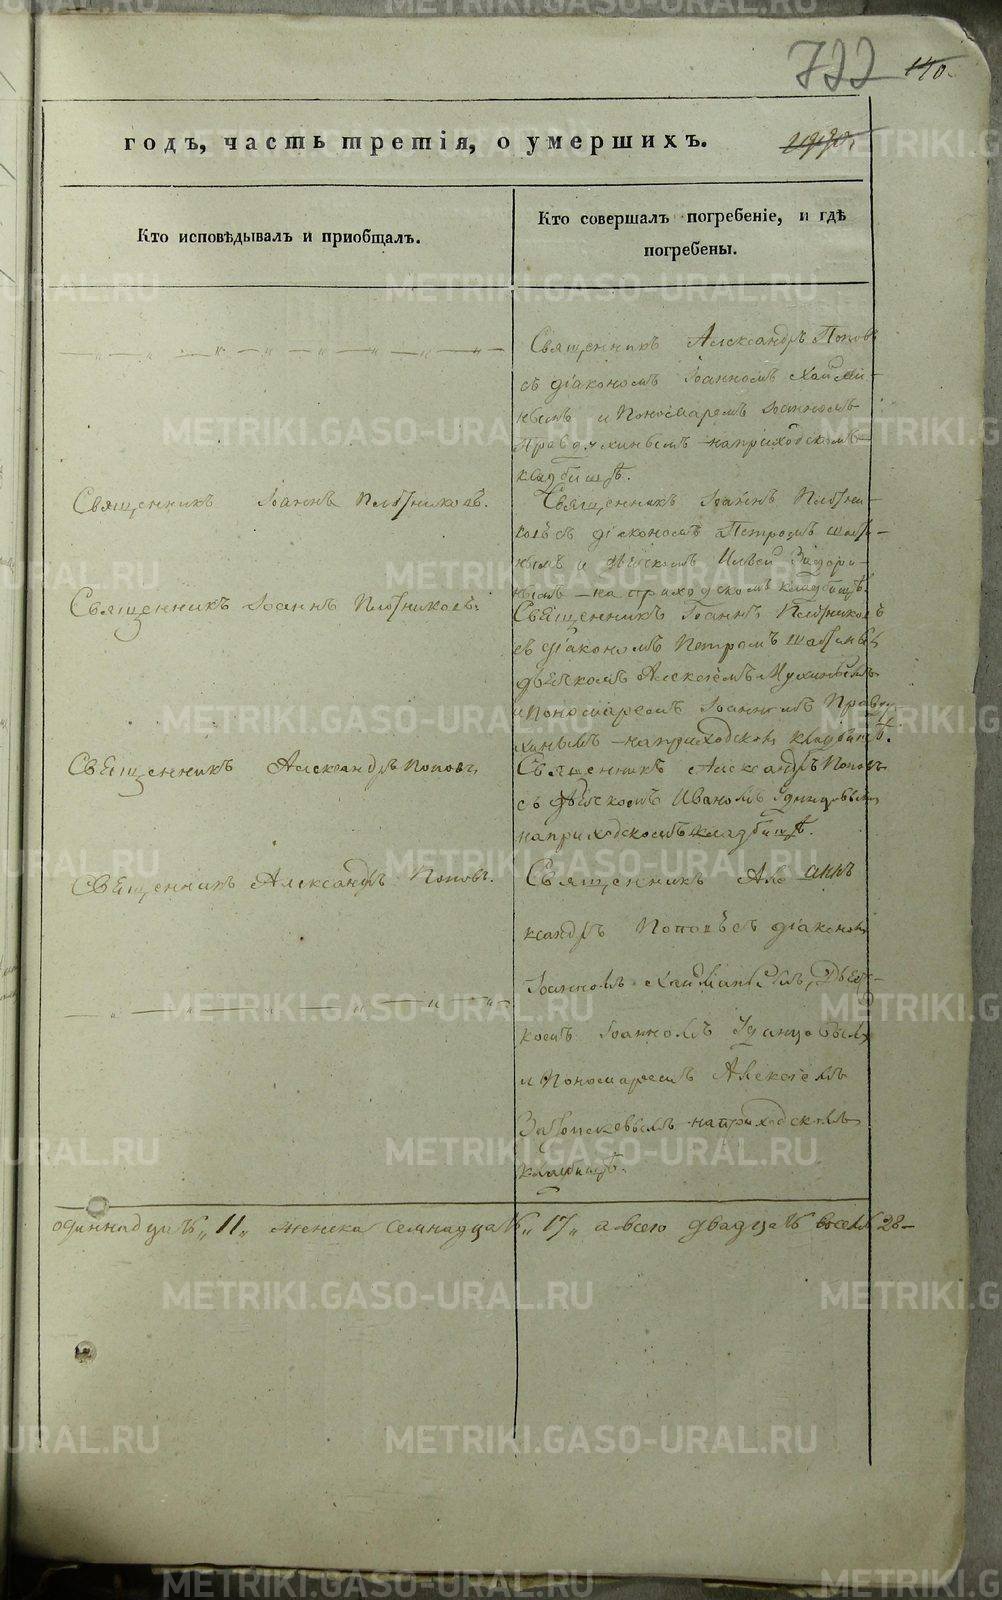 722 110
годъ, часть третія, о умершихъ.
Кто исповѣдывалъ и приобщалъ.
Кто совершалъ погребеніе, и гдѣ
погребены.
Священникъ Александръ Поповъ
съ діакономъ Іоанномъ
и Пономаремъ Іоанномъ
на приходскомъ
кладбищѣ.
Священникъ Іоаннъ Плотниковъ.
Священникъ Іоаннъ Плотни-
ковъ съ діакономъ Петромъ
и дьячкомъ Ильей
на приходскомъ кладбищѣ.
Священникъ Іоаннъ Плотниковъ.
Священникъ Іоаннъ Плотниковъ
съ діакономъ Петромъ
дьячкомъ Алексіемъ Мухинымъ
и Пономаремъ Іоанномъ
на приходскомъ кладбищѣ.
Священникъ Александръ Поповъ
Священникъ Александръ Поповъ
съ дьячкомъ Иваномъ
на приходскомъ кладбищѣ.
Священникъ Александръ Поповъ.
Священникъ Але
ксандръ Поповъ съ діакономъ
Іоанномъ
Іоанномъ
и Пономаремъ Алексіемъ
на приходскомъ
кладбищѣ.
одиннадцать „11„ женска семнадцать „17„ а всего двадцать восемь 28
METRIKI.GASO-URAL.RU